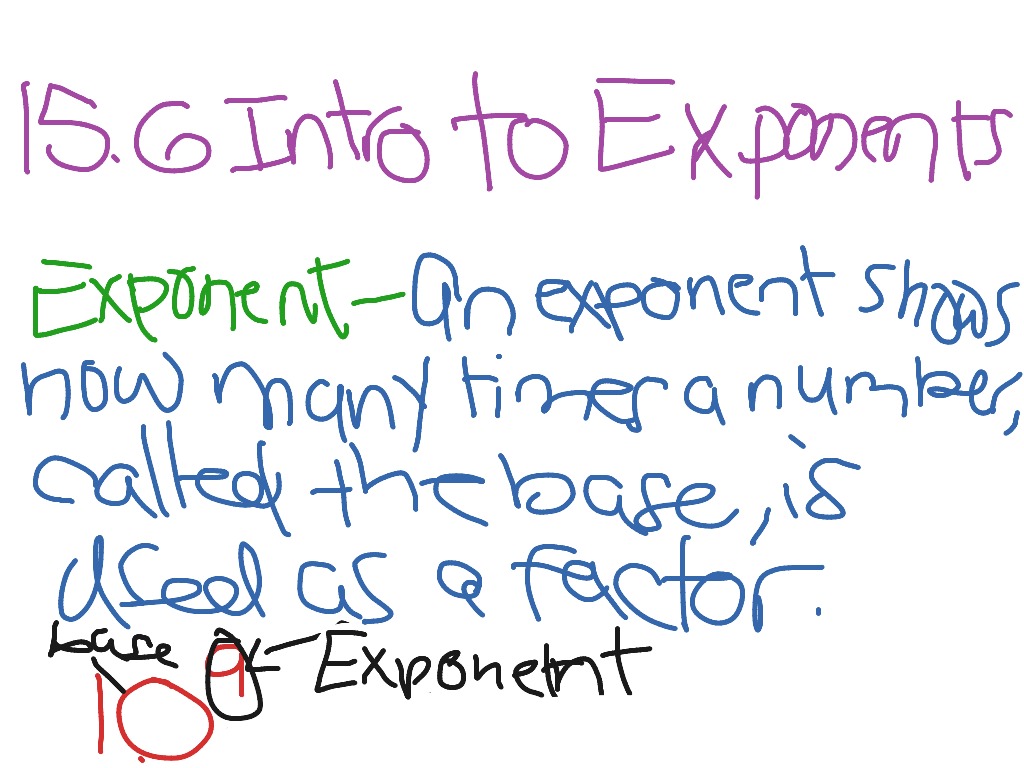 15.6 Into to Exponents
Exponent - An exponent shows
how many times a number,
called the base, is
used as a factor.
base 9 Exponent
10